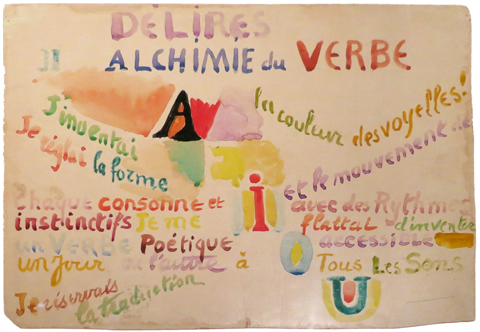 DÉLIRES
II ALCHIMIE du VERBE
J'inventai A la couleur des voyelles!
Je réglai la forme E et le mouvement de
Chaque consonne et i avec des Rythmes
instinctifs Je me flattai d'inventer
un VERBE Poétique accessible
un Jour ou l'autre à O Tous Les Sens
Je réservais la traduction U